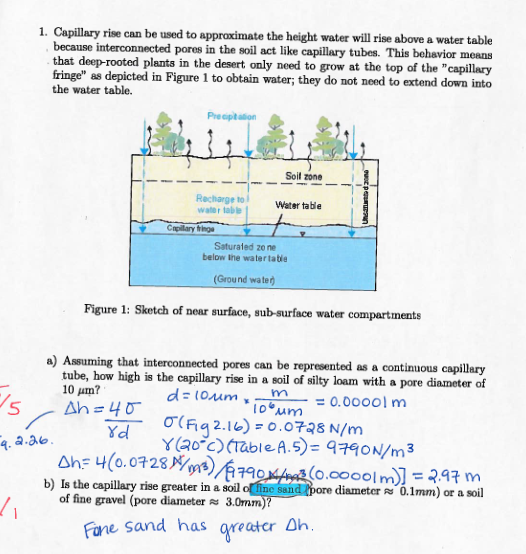 1. Capillary rise can be used to approximate the height water will rise above a water table
because interconnected pores in the soil act like capillary tubes. This behavior means
that deep-rooted plants in the desert only need to grow at the top of the "capillary
fringe" as depicted in Figure 1 to obtain water; they do not need to extend down into
the water table.
Precipitation
Soil zone
Unsaturated zone
Recharge to
water table
Water table
Capillary fringe
Saturated zone
below the water table
(Ground water)
Figure 1: Sketch of near surface, sub-surface water compartments
a) Assuming that interconnected pores can be represented as a continuous capillary
tube, how high is the capillary rise in a soil of silty loam with a pore diameter of
10 μm?
d = 10μm × m / 10⁶ μm = 0.00001 m
/5
Δh = 4σ / γd
σ (Fig 2.16) = 0.0728 N/m
q. 2.26.
γ (20°C) (Table A.5) = 9790 N/m³
Δh = 4(0.0728 N/m²) / [9790 N/m³ (0.00001m)] = 2.97 m
b) Is the capillary rise greater in a soil of fine sand (pore diameter ≈ 0.1mm) or a soil
of fine gravel (pore diameter ≈ 3.0mm)?
/1
Fine sand has greater Δh.